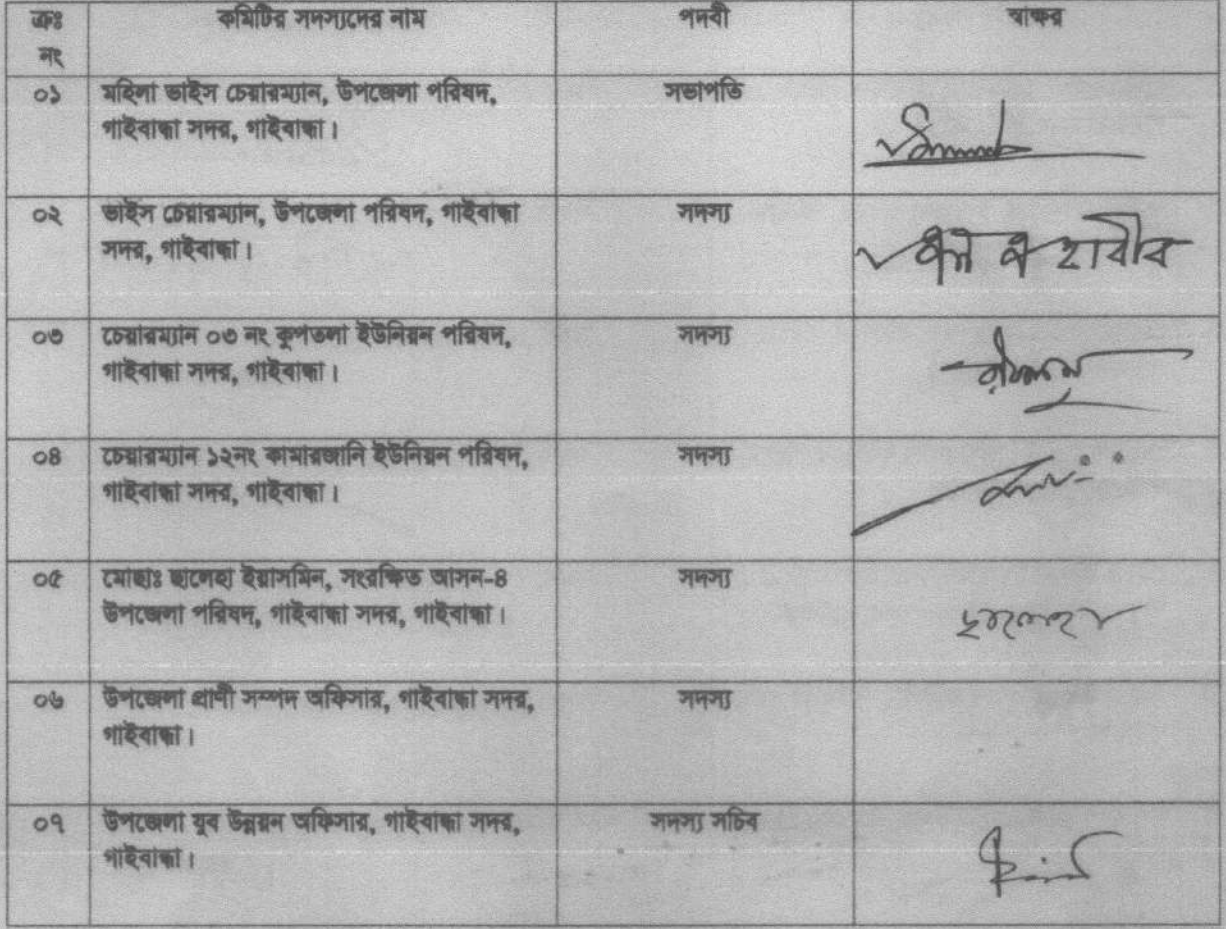 ক্রঃ নং কমিটির সদস্যদের নাম পদবী স্বাক্ষর
০১ মহিলা ভাইস চেয়ারম্যান, উপজেলা পরিষদ, সভাপতি
গাইবান্ধা সদর, গাইবান্ধা।
০২ ভাইস চেয়ারম্যান, উপজেলা পরিষদ, গাইবান্ধা সদস্য
সদর, গাইবান্ধা।
০৩ চেয়ারম্যান ০৩ নং কুপতলা ইউনিয়ন পরিষদ, সদস্য
গাইবান্ধা সদর, গাইবান্ধা।
০৪ চেয়ারম্যান ১২নং কামারজানি ইউনিয়ন পরিষদ, সদস্য
গাইবান্ধা সদর, গাইবান্ধা।
০৫ মোছাঃ ছালেহা ইয়াসমিন, সংরক্ষিত আসন-৪ সদস্য
উপজেলা পরিষদ, গাইবান্ধা সদর, গাইবান্ধা।
ছালেহা
০৬ উপজেলা প্রাণী সম্পদ অফিসার, গাইবান্ধা সদর, সদস্য
গাইবান্ধা।
০৭ উপজেলা যুব উন্নয়ন অফিসার, গাইবান্ধা সদর, সদস্য সচিব
গাইবান্ধা।